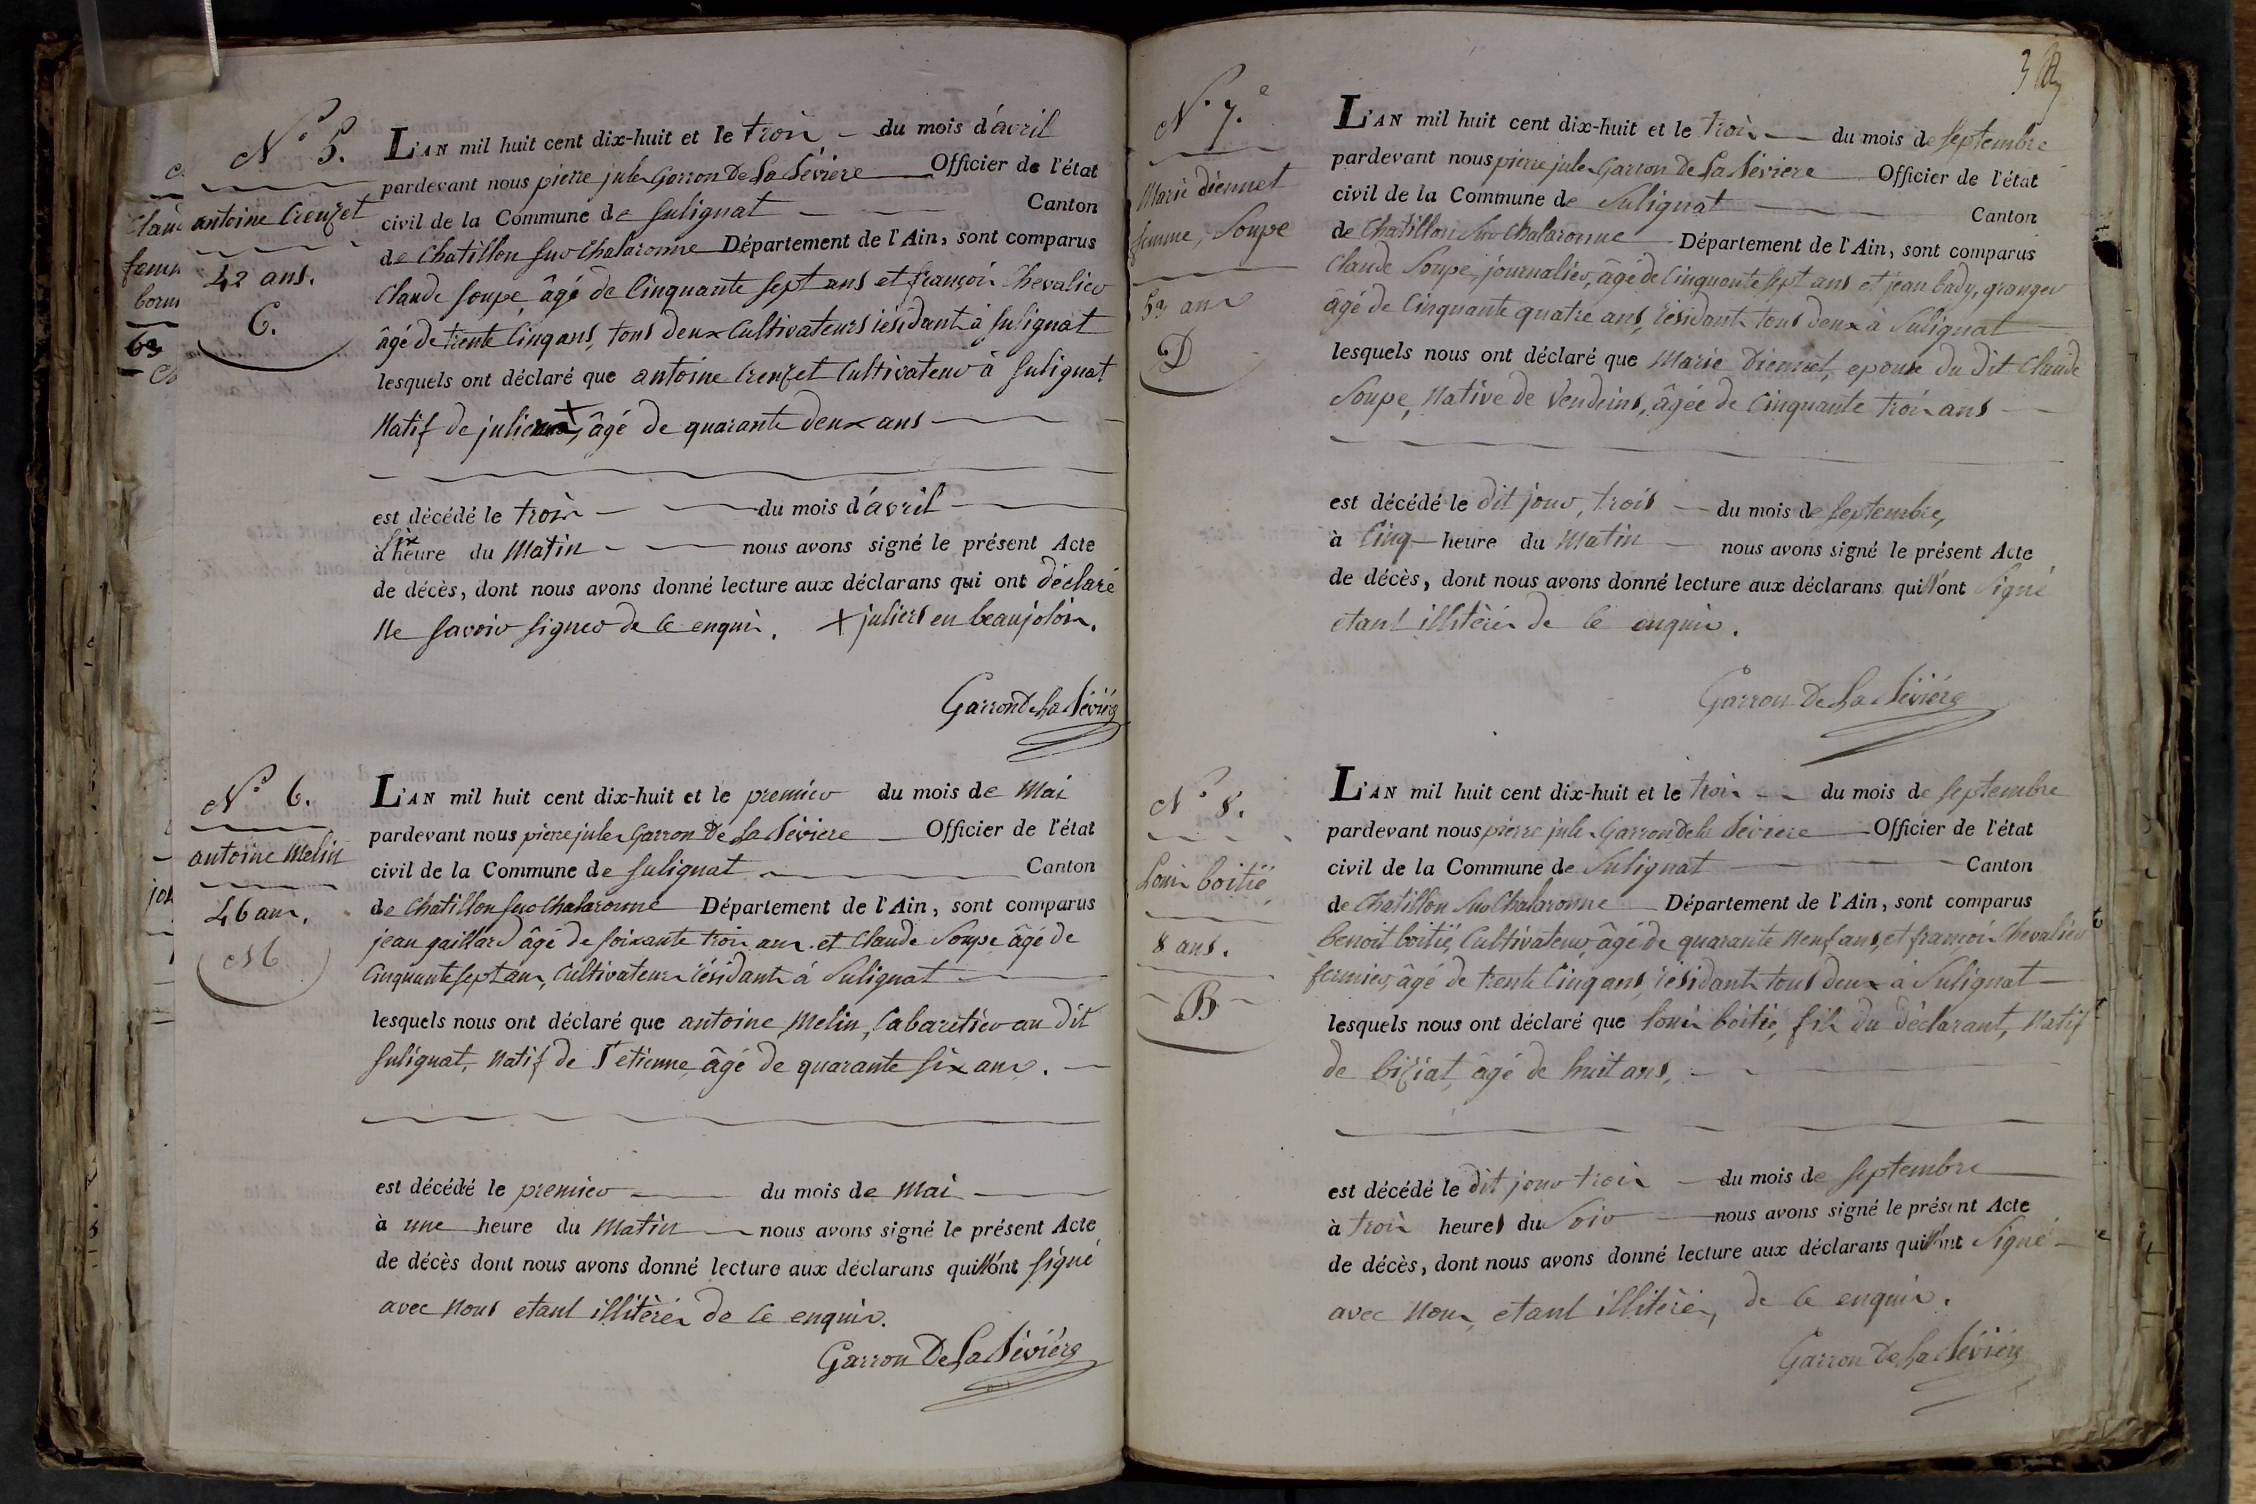 N° 5.
antoine Creuzet
42 ans.
C.
L'AN mil huit cent dix-huit et le trois du mois d'avril
pardevant nous pierre jules Garron De La Séviere Officier de l'état
civil de la Commune de Sulignat Canton
de Chatillon sur Chalaronne Département de l'Ain, sont comparus
Claude Soupe, âgé de Cinquante sept ans et françois Chevalier
âgé de trente Cinq ans, tous deux Cultivateurs résidants à Sulignat
lesquels ont déclaré que antoine Creuzet Cultivateur à Sulignat
Natif de +, âgé de quarante deux ans
est décédé le trois du mois d'avril
à six heure du Matin nous avons signé le présent Acte
de décès, dont nous avons donné lecture aux déclarans qui ont déclaré
Ne savoir signer de ce enquis. + juliers en beaujolois.
Garron De La Séviére
N° 6.
antoine Melin
46 ans.
M
L'AN mil huit cent dix-huit et le premier du mois de Mai
pardevant nous pierre jules Garron De La Séviere Officier de l'état
civil de la Commune de Sulignat Canton
de Chatillon sur Chalaronne Département de l'Ain, sont comparus
jean gaillard âgé de soixante trois ans et Claude Soupe âgé de
Cinquante sept ans, Cultivateurs résidants à Sulignat
lesquels nous ont déclaré que antoine Melin, Cabaretier au dit
Sulignat, Natif de St etienne âgé de quarante six ans.
est décédé le premier du mois de Mai
à une heure du Matin nous avons signé le présent Acte
de décès dont nous avons donné lecture aux déclarans qui n'ont signé
avec Nous etant illitérés de ce enquis.
Garron De La Séviére
N° 7.e
Marie diennet
femme, Soupe
53 ans
D
L'AN mil huit cent dix-huit et le trois du mois de septembre
pardevant nous pierre jules Garron De La Séviere Officier de l'état
civil de la Commune de Sulignat Canton
de Chatillon Sur Chalaronne Département de l'Ain, sont comparus
Claude Soupe, journalier, âgé de Cinquante sept ans et jean bady, granger
âgé de Cinquante quatre ans, résidants tous deux à Sulignat
lesquels nous ont déclaré que Marie Diennet, epouse du dit Claude
Soupe, Native de Vendeins, âgée de Cinquante trois ans
est décédé le dit jour, trois du mois de septembre,
à Cinq heure du Matin nous avons signé le présent Acte
de décès, dont nous avons donné lecture aux déclarans qui n'ont Signé
etant illitérés de ce enquis.
Garron De La Séviére
N° 8.
Louis boitié
8 ans.
B
L'AN mil huit cent dix-huit et le trois du mois de septembre
pardevant nous pierre jules Garron De La Séviere Officier de l'état
civil de la Commune de Sulignat Canton
de Chatillon Sur Chalaronne Département de l'Ain, sont comparus
benoit boitié, Cultivateur, âgé de quarante Neuf ans, et françois Chevalier
fermier, âgé de trente Cinq ans, résidants tous deux à Sulignat
lesquels nous ont déclaré que Louis boitié, fils du déclarant, Natif
de biziat, âgé de huit ans,
est décédé le dit jour trois du mois de septembre
à trois heures du Soir nous avons signé le présent Acte
de décès, dont nous avons donné lecture aux déclarans qui n'ont Signé
avec Nous, etant illitérés, de ce enquis.
Garron De La Séviére